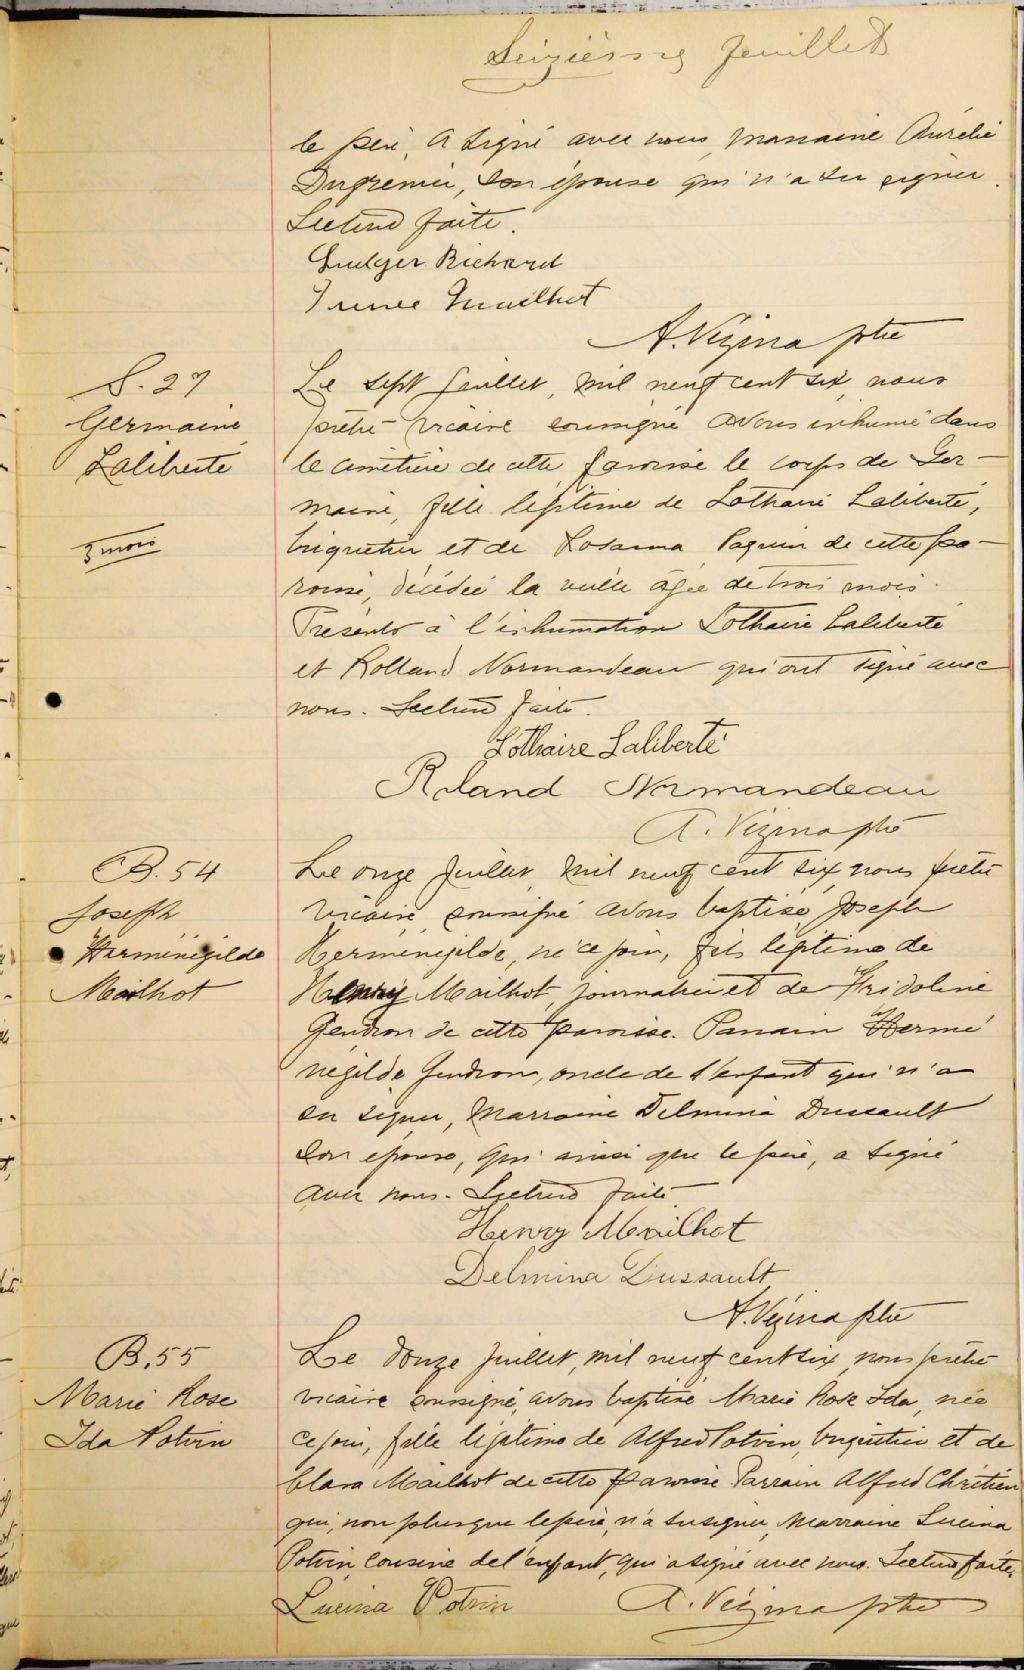 Seizième feuillet
le père, a signé avec nous, marraine Aurélie
Dugrenier, son épouse qui n'a su signer.
Lecture faite.
Ludger Richard
Mailhot
A. Vézina ptre
S. 27
Germaine
Laliberté
3 mois
Le sept juillet, mil neuf cent six, nous
prêtre-vicaire soussigné avons inhumé dans
le cimetière de cette paroisse le corps de Ger-
maine, fille légitime de Lothaire Laliberté,
briquetier et de Rosanna Paquin de cette pa-
roisse, décédée la veille âgée de trois mois.
Présents à l'inhumation Lothaire Laliberté
et Rolland Normandeau qui ont signé avec
nous. Lecture faite.
Lothaire Laliberté
Roland Normandeau
A. Vézina ptre
B. 54
Joseph
Herménégilde
Mailhot
Le onze juillet, mil neuf cent six, nous prêtre
vicaire soussigné avons baptisé, Joseph
Herménégilde, né ce jour, fils légitime de
Henry Mailhot, journalier et de Fridoline
Gendron de cette paroisse. Parrain Hermé
négilde Gendron, oncle de l'enfant qui n'a
su signer, marraine Delmina Dussault
son épouse, qui ainsi que le père, a signé
avec nous. Lecture faite
Henry Mailhot
Delmina Dussault
A. Vézina ptre
B. 55
Marie Rose
Ida Potvin
Le douze juillet, mil neuf cent six, nous prêtre
vicaire soussigné, avons baptisé Marie Rose Ida, née
ce jour, fille légitime de Alfred Potvin, briquetier et de
Clara Mailhot de cette paroisse Parrain Alfred Chrétien
qui, non plus que le père, n'a su signer, marraine Lucina
Potvin cousine de l'enfant, qui a signé avec nous. Lecture faite.
Lucina Potvin
A. Vézina ptre